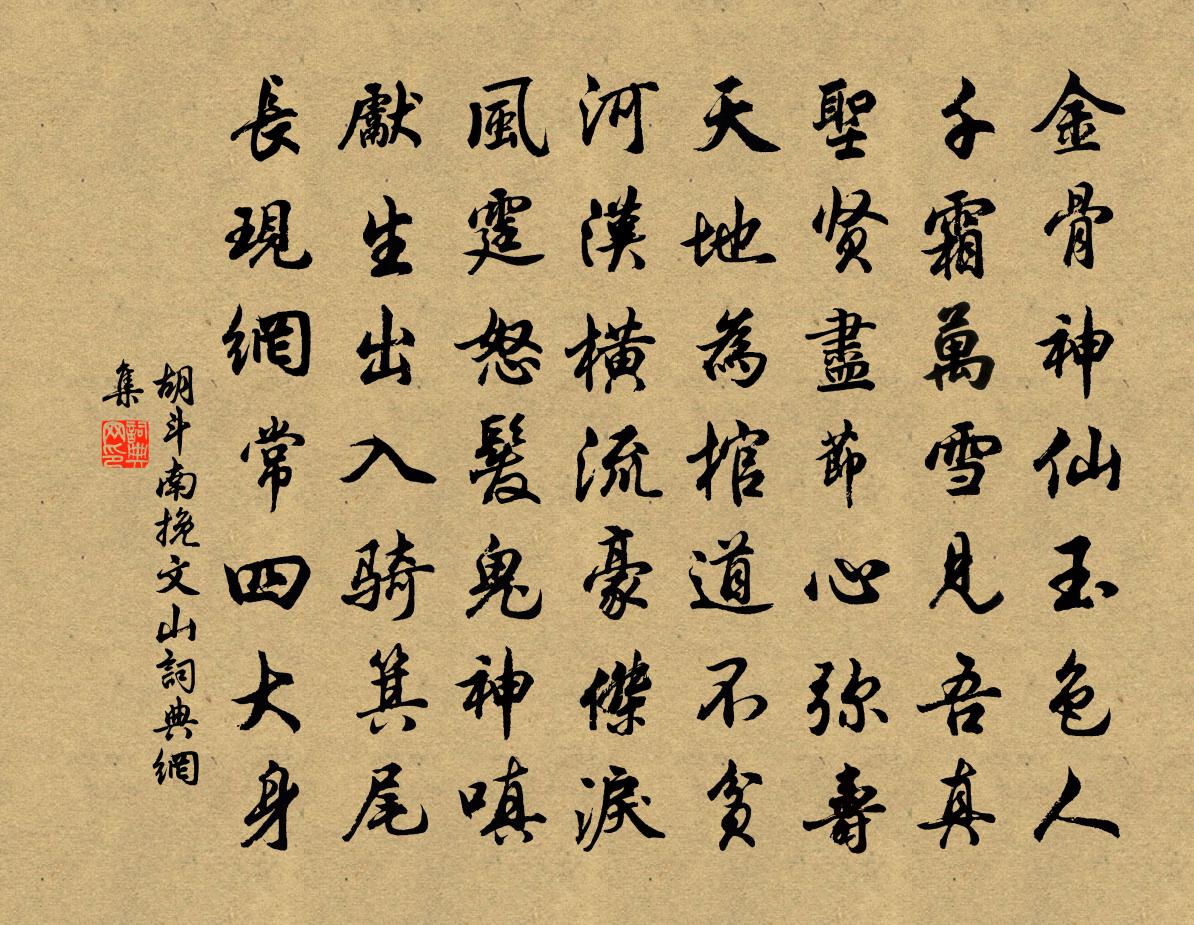 金骨神仙玉色人
千霜萬雪見吾真
聖贤盡節心弥壽
天地為棺道不貧
河漢橫流豪傑淚
風霆怒髮鬼神嗔
獻生出入騎箕尾
長現網常四大身
胡斗南挽文山詞典網
集
詞典
网印